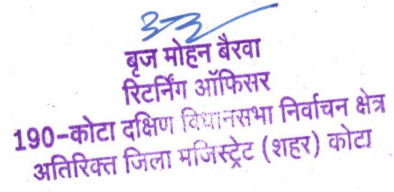 बृज मोहन बैरवा
रिटर्निंग ऑफिसर
190-कोटा दक्षिण विधानसभा निर्वाचन क्षेत्र
अतिरिक्त जिला मजिस्ट्रेट (शहर) कोटा